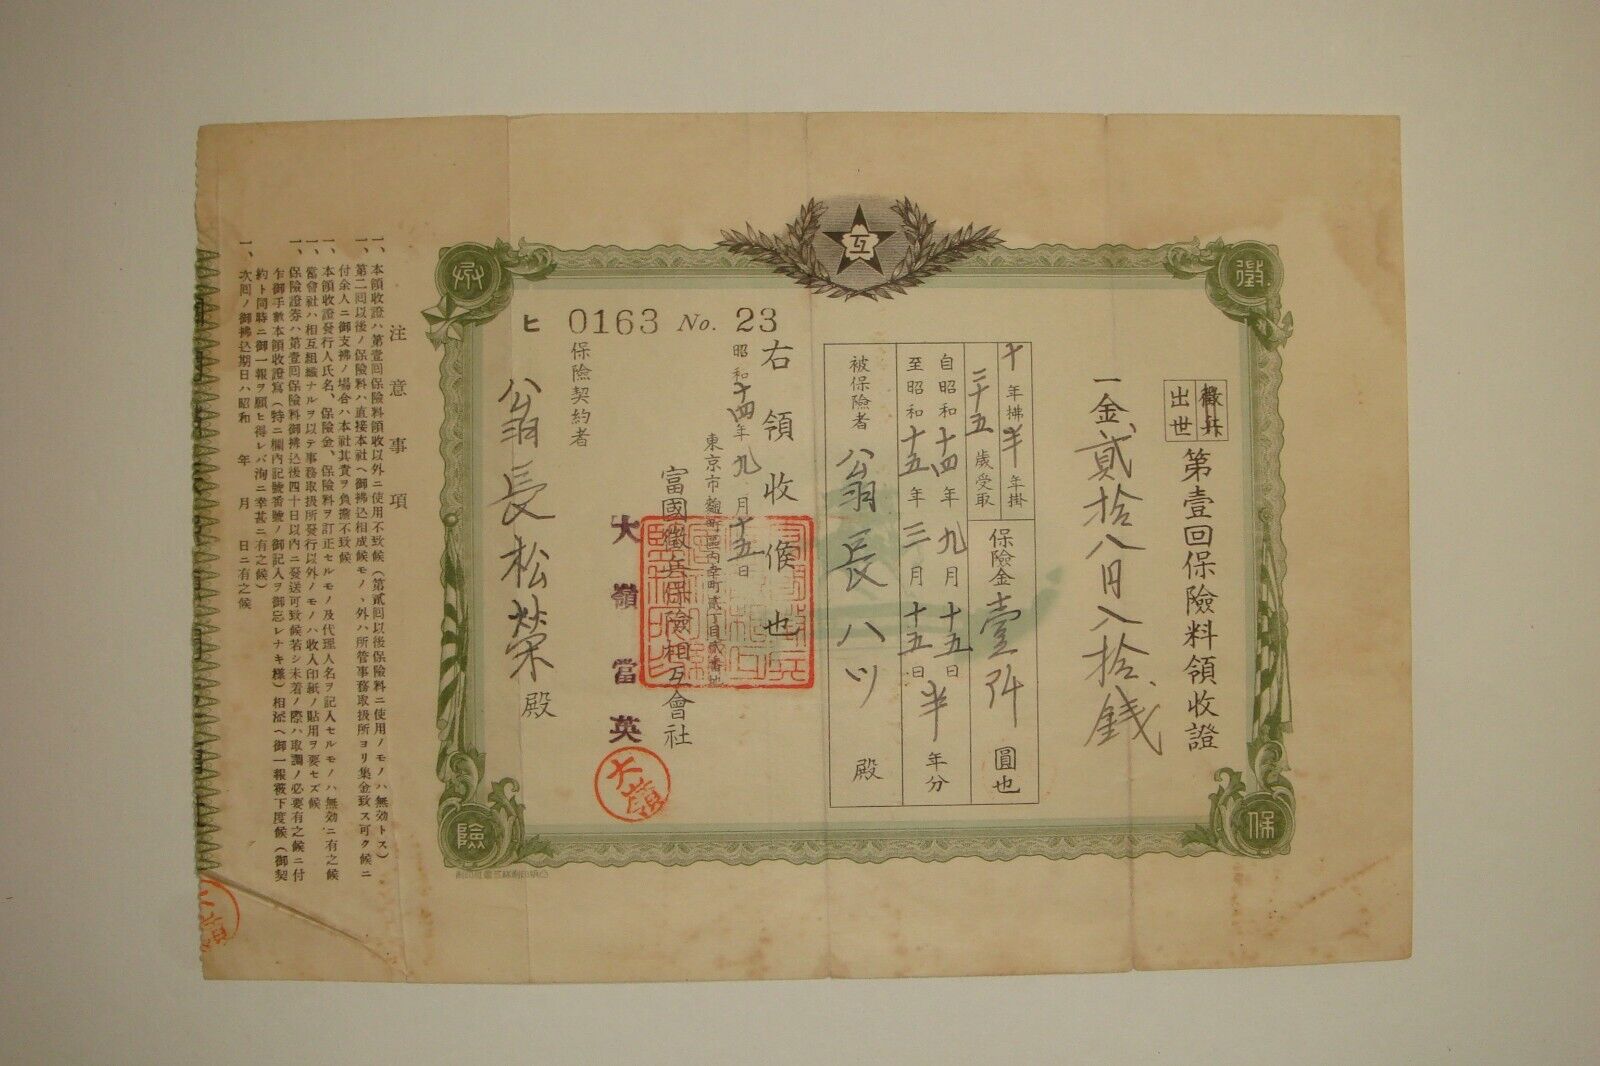 徵
兵
保
險
互
徵兵
出世
第壹回保險料領收證
一金貳拾八円八拾錢
十年拂半年掛
三十五歲受取
保險金壹阡圓也
自昭和十四年九月十五日
至昭和十五年三月十五日
半年分
被保險者 翁長八〃 殿
右領收候也
ヒ 0163 No. 23
昭和十四年九月十五日
東京市麴町區內幸町貳丁目貳番地
富國徵兵保險相互會社
大嶺當英
大嶺
保險契約者
翁長松榮殿
注意事項
一、本領收證ハ第壹回保險料領收以外ニ使用不致候(第貳回以後保險料ニ使用ノモノハ無効トス)
一、第二回以後ノ保險料ハ直接本社ヘ御拂込相成候モノヽ外ハ所管事務取扱所ヨリ集金致ス可ク候ニ
付余人ニ御支拂ノ場合ハ本社其責ヲ負擔不致候
一、本領收證發行人氏名、保險金、保險料ヲ訂正セルモノ及代理人名ヲ記入セルモノハ無効ニ有之候
一、當會社ハ相互組織ナルヲ以テ事務取扱所發行以外ノモノハ收入印紙ノ貼用ヲ要セズ候
一、保險證券ハ第壹回保險料御拂込後四十日以內ニ發送可致候若シ未着ノ際ハ取調ノ必要有之候ニ付
乍御手數本領收證寫(特ニ欄內記號番號ノ御記入ヲ御忘レナキ樣)相添ヘ御一報被下度候(御契
約ト同時ニ御一報ヲ願ヒ得レバ洵ニ幸甚ニ有之候)
一、次回ノ御拂込期日ハ昭和 年 月 日ニ有之候